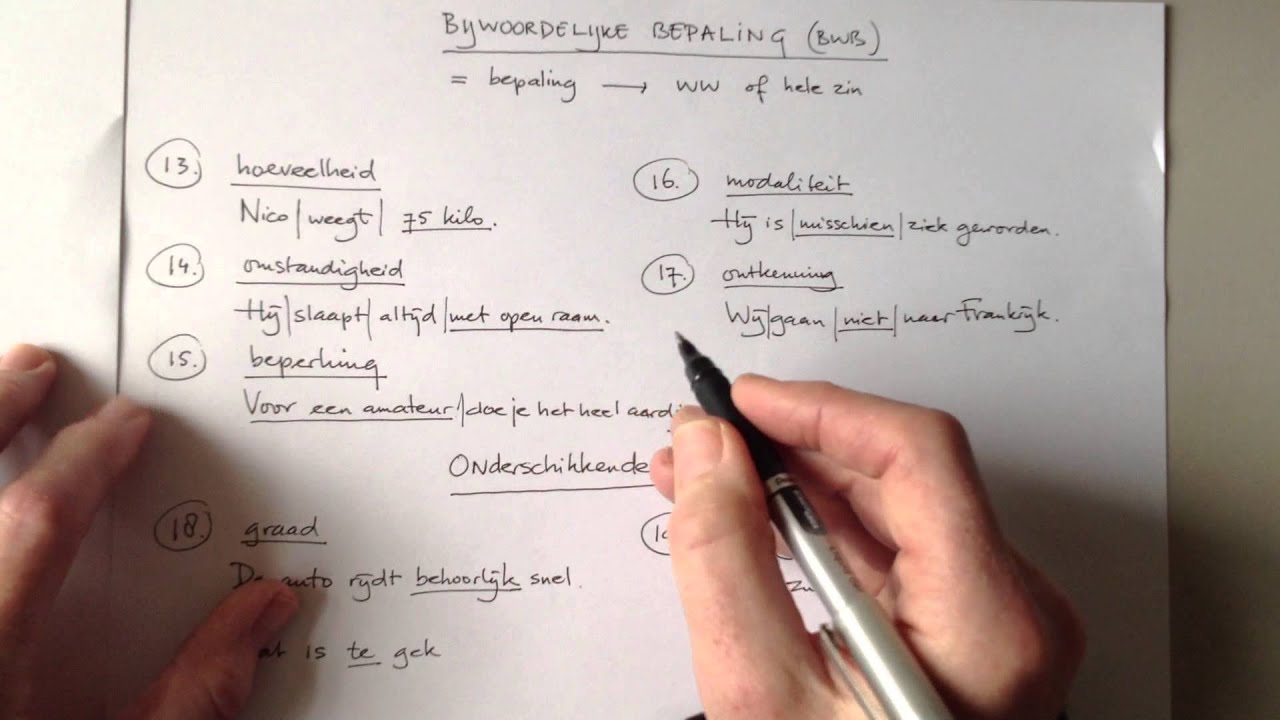 BIJWOORDELIJKE BEPALING (BWB)
= bepaling → WW of hele zin
13. hoeveelheid
Nico | weegt | 75 kilo.
14. omstandigheid
Hij | slaapt | altijd | met open raam.
15. beperking
Voor een amateur | doe je het heel
16. modaliteit
Hij is | misschien | ziek geworden.
17. ontkenning
Wij | gaan | niet | naar Frankrijk.
Onderschikkende
18. graad
auto rijdt behoorlijk snel.
is te gek